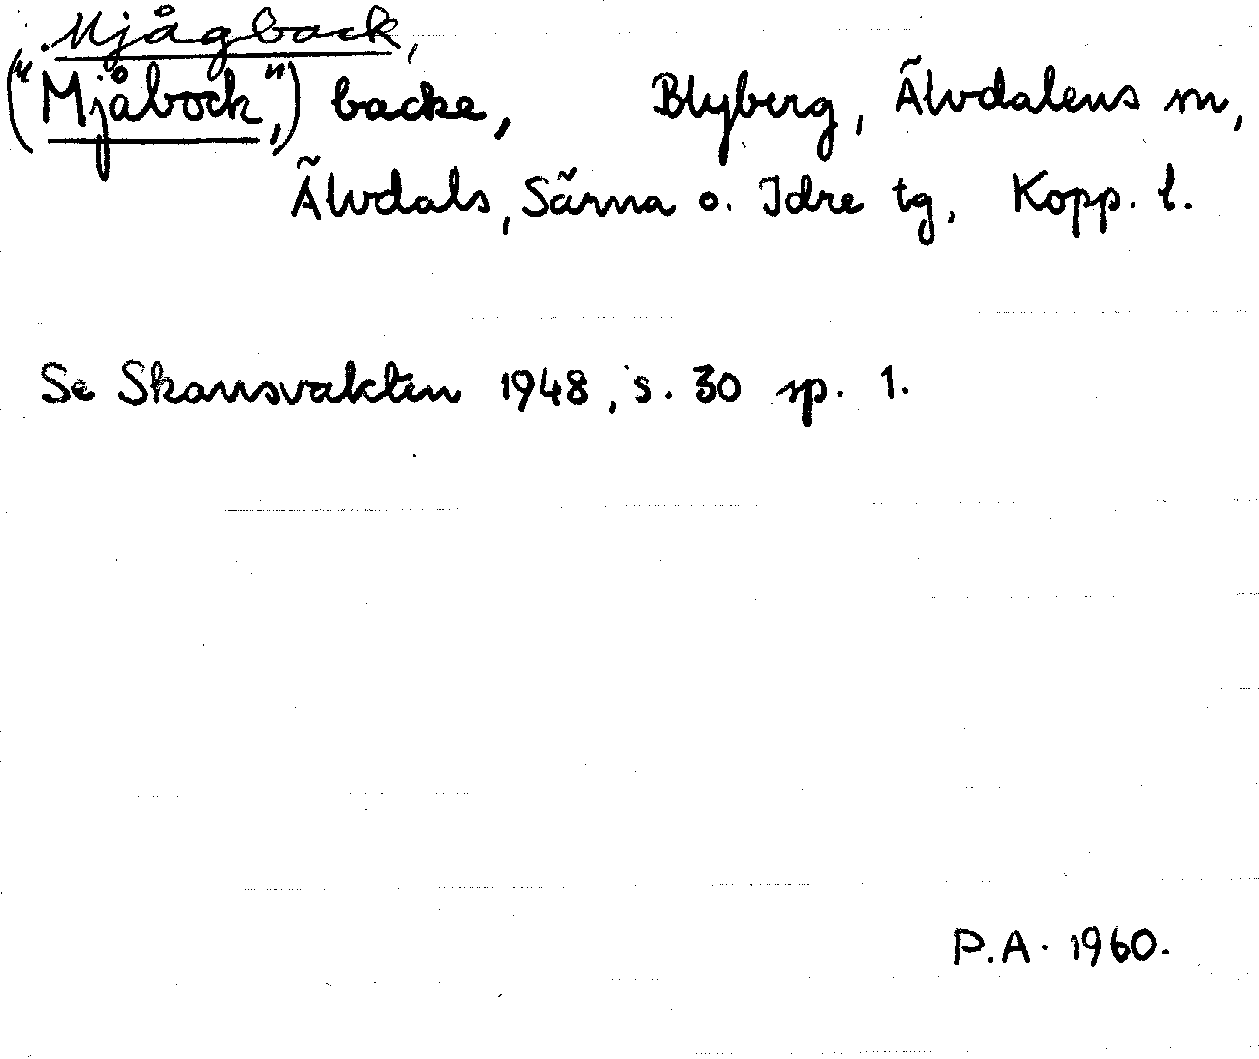 Mjågback,
("Mjåbock",) backe, Blyberg, Älvdalens sn,
Älvdals, Särna o. Idre tg, Kopp. l.
Se Skansvakten 1948, s. 30 sp. 1.
P.A. 1960.